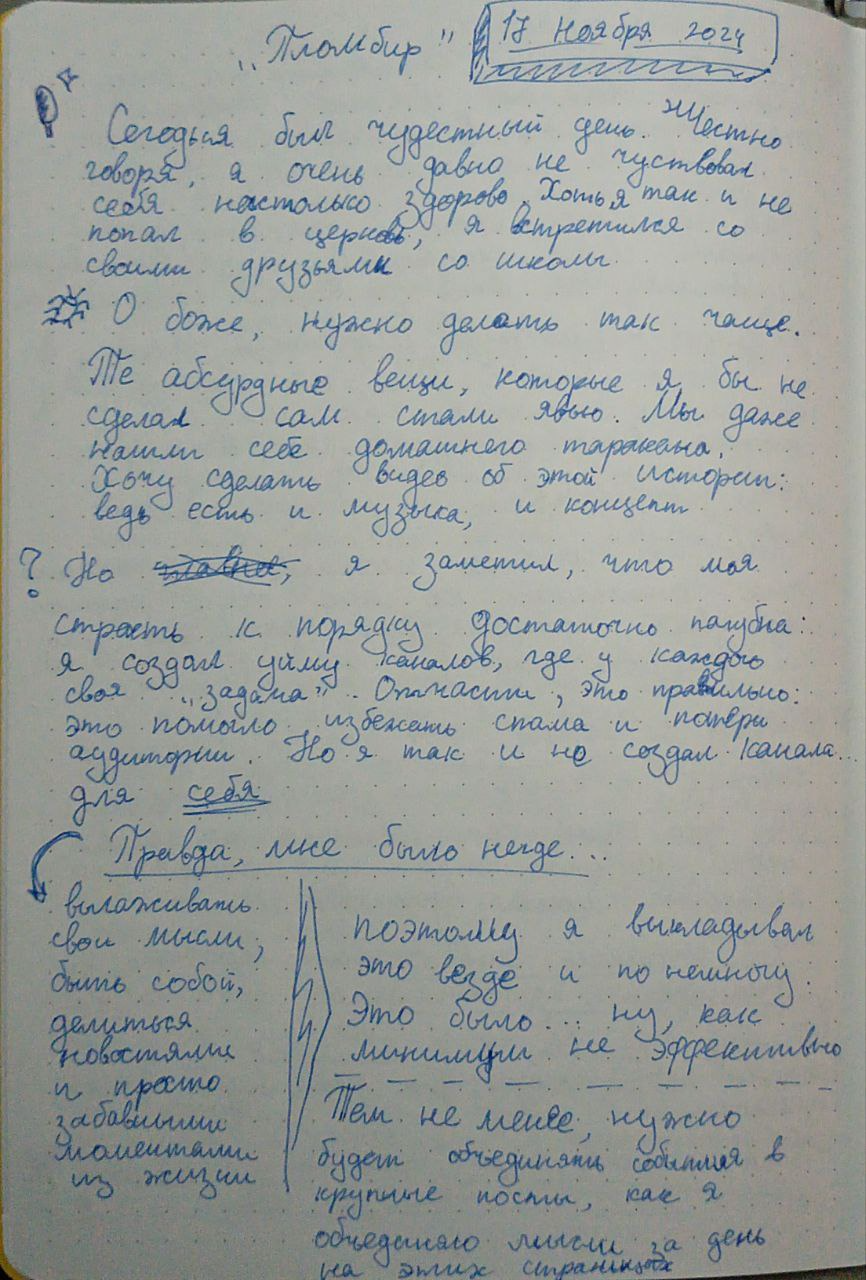 „Пломбир"
17 ноября 2024
Сегодня был чудестный день. Честно
говоря, я очень давно не чуствовал
себя настолько здорово. Хоть я так и не
попал в церковь, я встретился со
своими друзьями со школы
О боже, нужно делать так чаще.
Те абсурдные вещи, которые я бы не
сделал сам стали явью. Мы даже
нашли себе домашнего таракана.
Хочу сделать видео об этой истории:
ведь есть и музыка, и концепт
? Но главное, я заметил, что моя
страсть к порядку достаточно пагубна:
я создал уйму каналов, где у каждого
своя „задача". Отчасти, это правильно:
это помогло избежать спама и потери
аудитории. Но я так и не создал канала...
для себя
Правда, мне было негде...
вылаживать
свои мысли,
быть собой,
делиться
новостями
и просто
забавными
моментами
из жизни
поэтому я выкладывал
это везде и по немногу.
Это было... ну, как
минимум не эффективно
Тем не менее, нужно
будет объединять события в
крупные посты, как я
объединяю мысли за день
на этих страницах